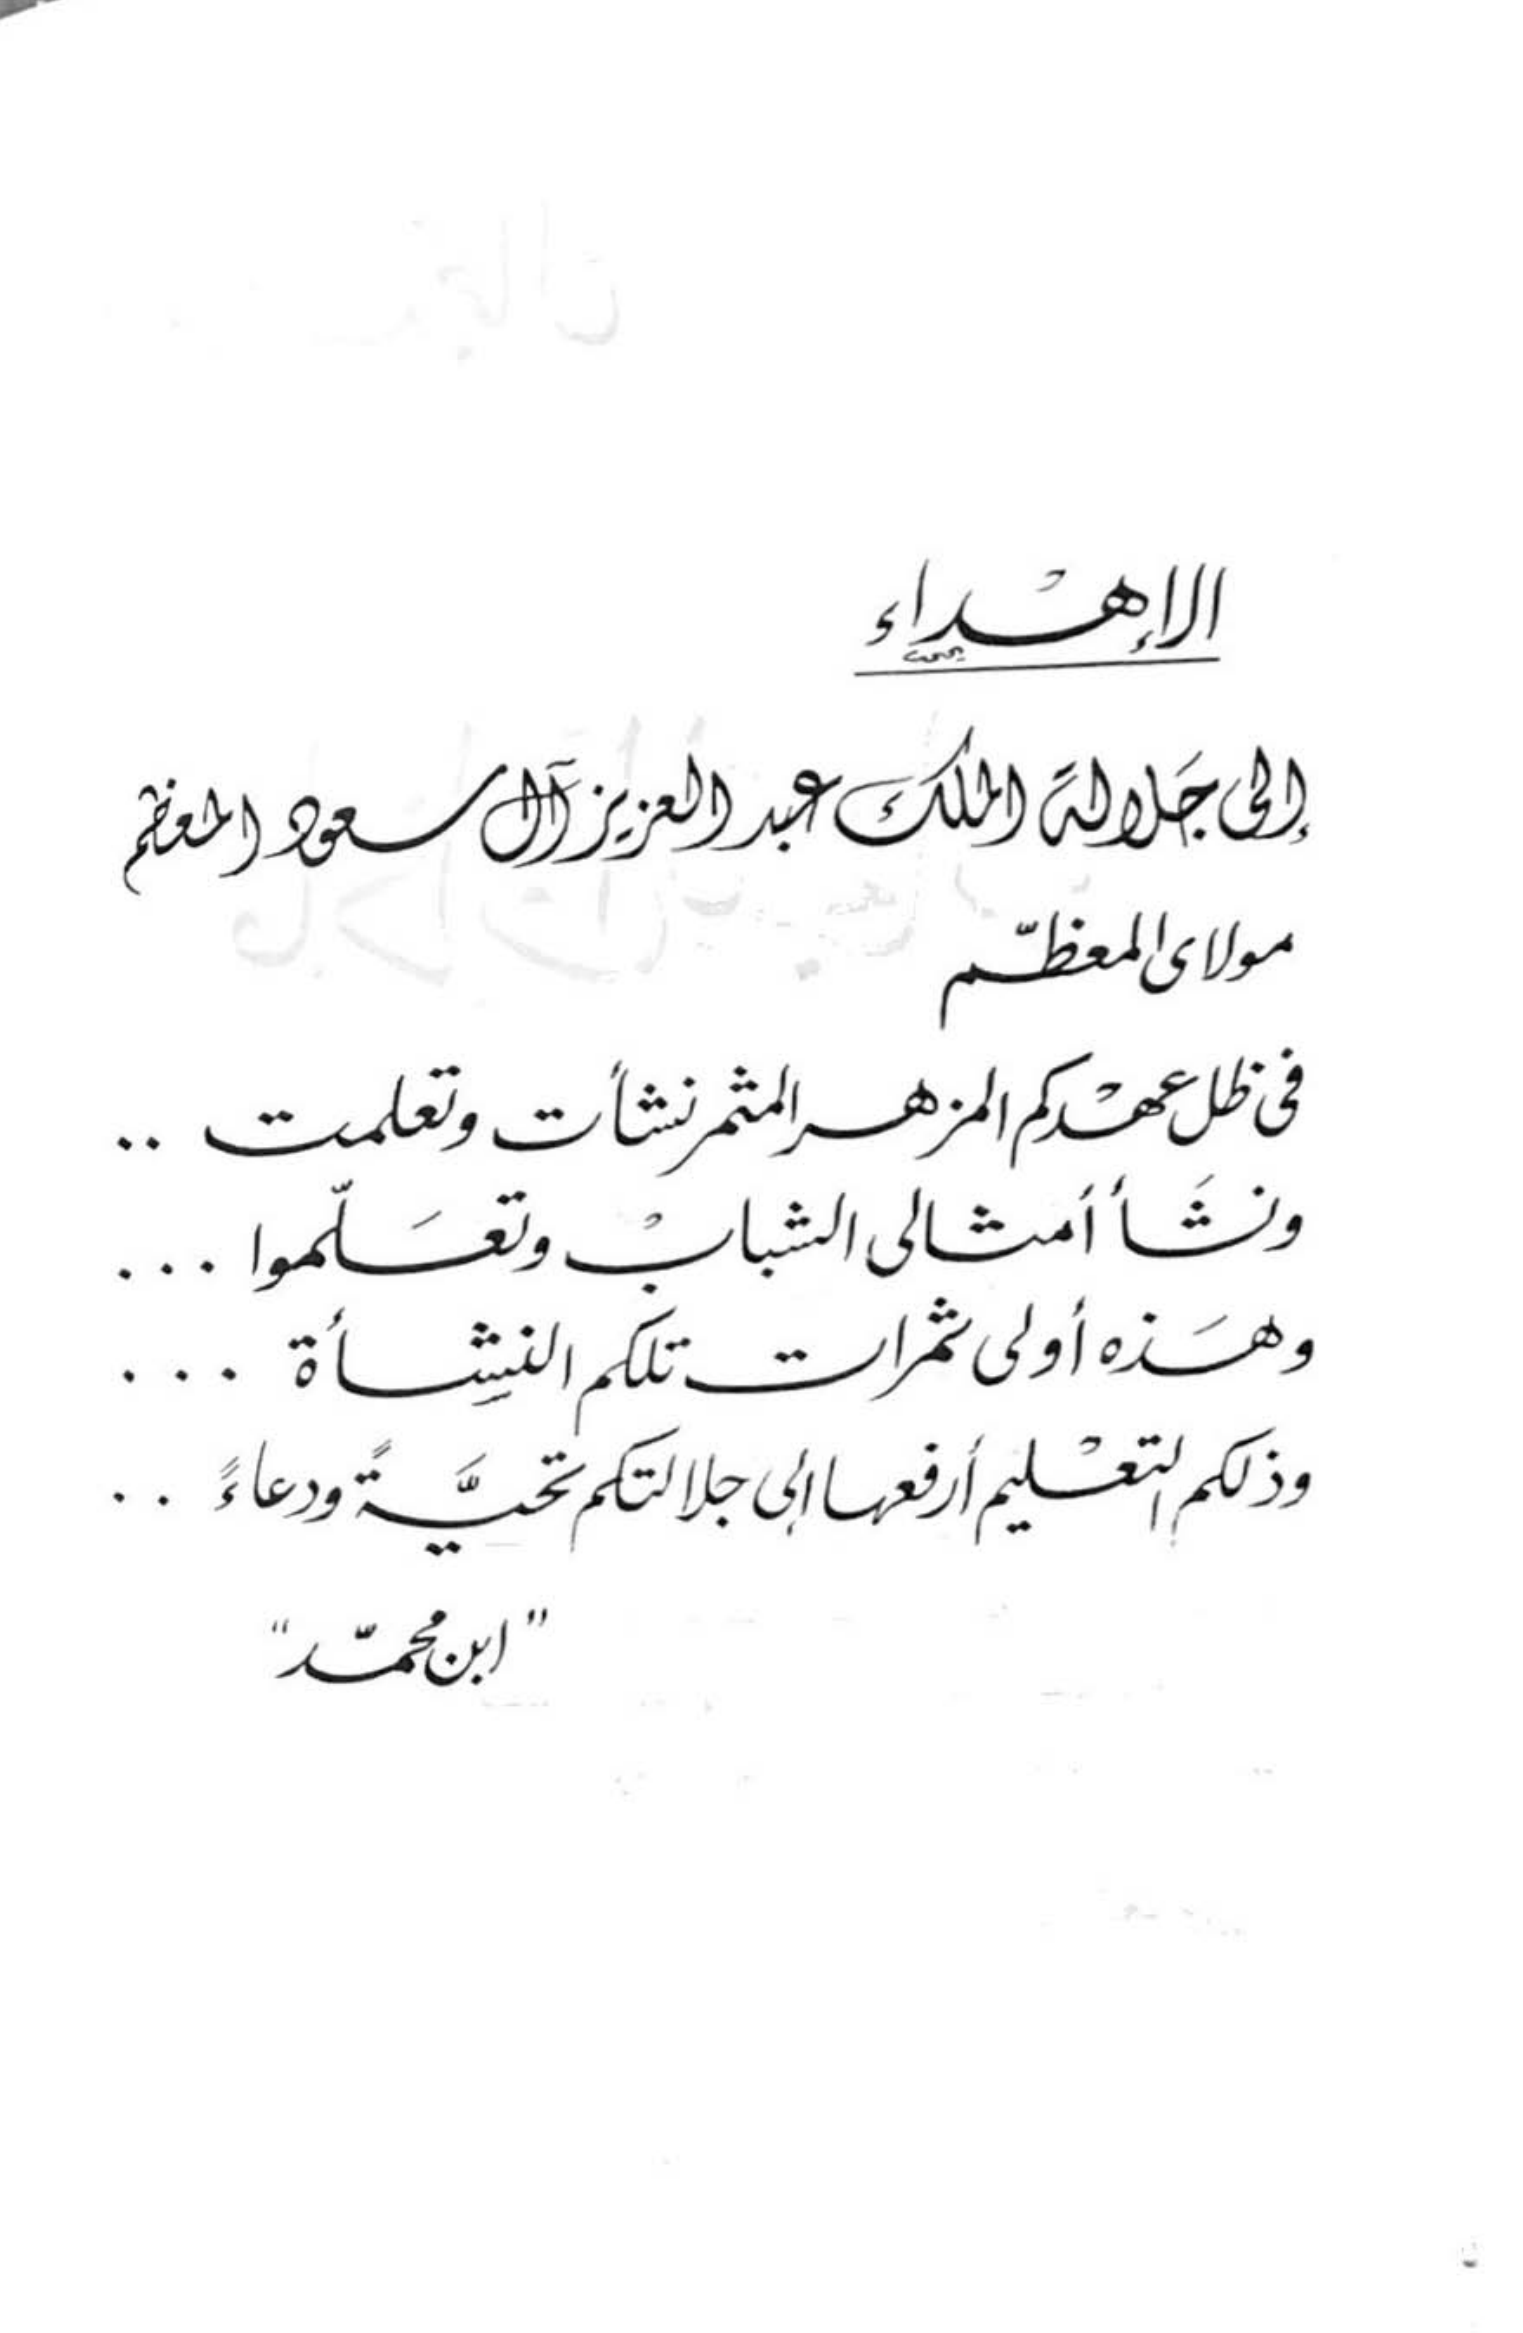 الإهْداء
إلى جَلالة الملك عبد العزيز آل سعود المعظم
مولاى المعظّم
فى ظل عهْدكم المزهر المثمر نشأت وتعلمت ..
ونشَأ أمثالى الشبابْ وتعَلّموا ...
وهَذه أولى ثمرات تلكم النشأة ...
وذلكم التعْليم أرفعها إلى جلالتكم تحيَّةً ودعاءً ..
" ابن محمّد "